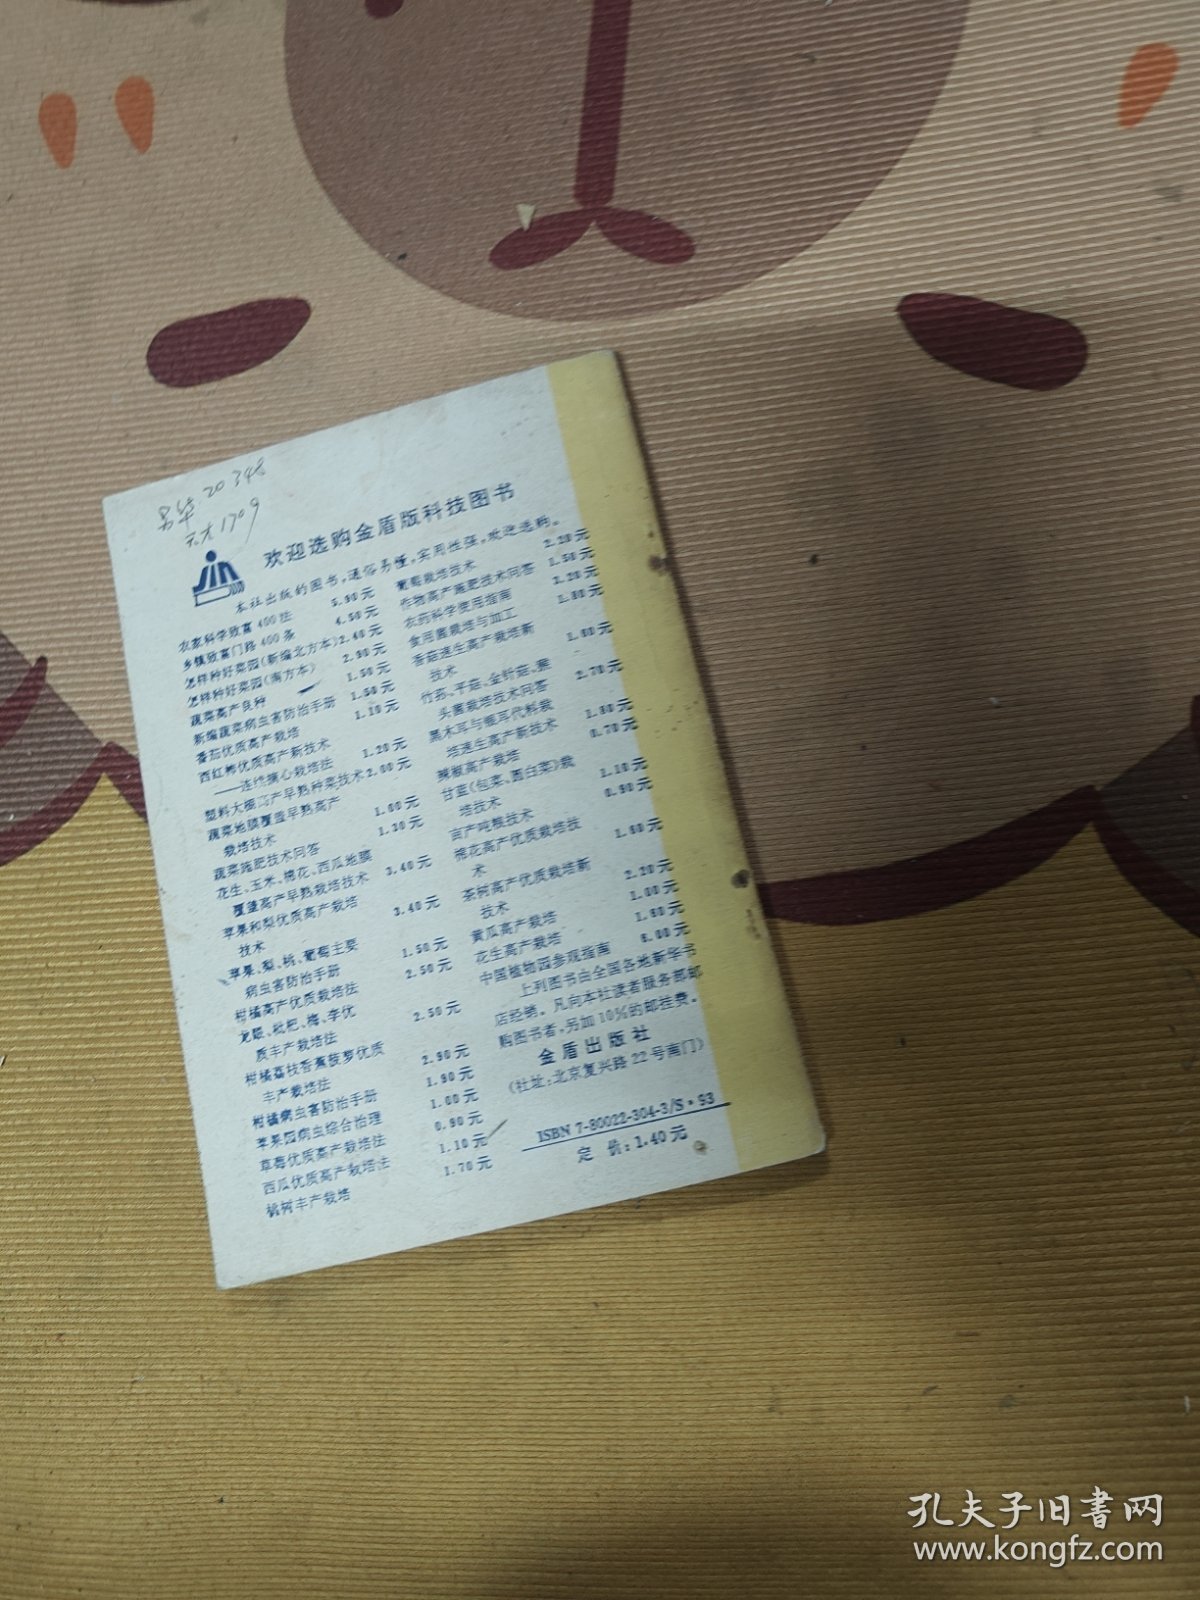 20348
1709
JIN DUN
欢迎选购金盾版科技图书
本社出版的图书，通俗易懂，实用性强，欢迎选购。
农家科学致富400法 5.90元
乡镇致富门路400条 4.50元
怎样种好菜园(新编北方本) 2.40元
怎样种好菜园(南方本) 2.90元
蔬菜高产良种 1.50元
新编蔬菜病虫害防治手册 1.50元
番茄优质高产栽培 1.10元
西红柿优质高产新技术
——连续摘心栽培法 1.20元
塑料大棚高产早熟种菜技术 2.00元
蔬菜地膜覆盖早熟高产
栽培技术 1.00元
蔬菜施肥技术问答 1.30元
花生、玉米、棉花、西瓜地膜
覆盖高产早熟栽培技术 3.40元
苹果和梨优质高产栽培
技术 3.40元
苹果、梨、桃、葡萄主要
病虫害防治手册 1.50元
柑橘高产优质栽培法 2.50元
龙眼、枇杷、梅、李优
质丰产栽培法 2.50元
柑橘荔枝香蕉菠萝优质
丰产栽培法 2.90元
柑橘病虫害防治手册 1.90元
苹果园病虫综合治理 1.00元
草莓优质高产栽培法 0.90元
西瓜优质高产栽培法 1.10元
桃树丰产栽培 1.70元
葡萄栽培技术 2.20元
作物高产施肥技术问答 1.50元
农药科学使用指南 3.20元
食用菌栽培与加工 1.80元
香菇速生高产栽培新
技术 1.60元
竹荪、平菇、金针菇、猴
头菌栽培技术问答 2.70元
黑木耳与银耳代料栽
培速生高产新技术 1.80元
辣椒高产栽培 0.70元
甘蓝(包菜、圆白菜)栽
培技术 1.10元
亩产吨粮技术 0.90元
棉花高产优质栽培技
术 1.60元
茶树高产优质栽培新
技术 2.20元
黄瓜高产栽培 1.00元
花生高产栽培 1.60元
中国植物园参观指南 6.00元
上列图书由全国各地新华书
店经销。凡向本社读者服务部邮
购图书者，另加10%的邮挂费。
金盾出版社
(社址：北京复兴路22号南门)
ISBN 7-80022-304-3/S·93
定价：1.40元
孔夫子旧书网
www.kongfz.com